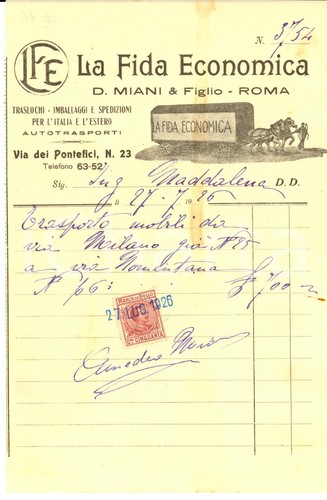 N. 3754
LFE La Fida Economica
D. MIANI & Figlio - ROMA
TRASLOCHI - IMBALLAGGI E SPEDIZIONI
PER L'ITALIA E L'ESTERO
AUTOTRASPORTI
LA FIDA ECONOMICA
Via dei Pontefici, N. 23
Telefono 63-521
Sig. Ing Maddalena D. D.
li 27-7 1926
Trasporto mobili da
via Milano già N 25
a via Nomentana
N 66: 700
MARCA DA BOLLO
27 LUG. 1926
CINQUANTA
Amedeo